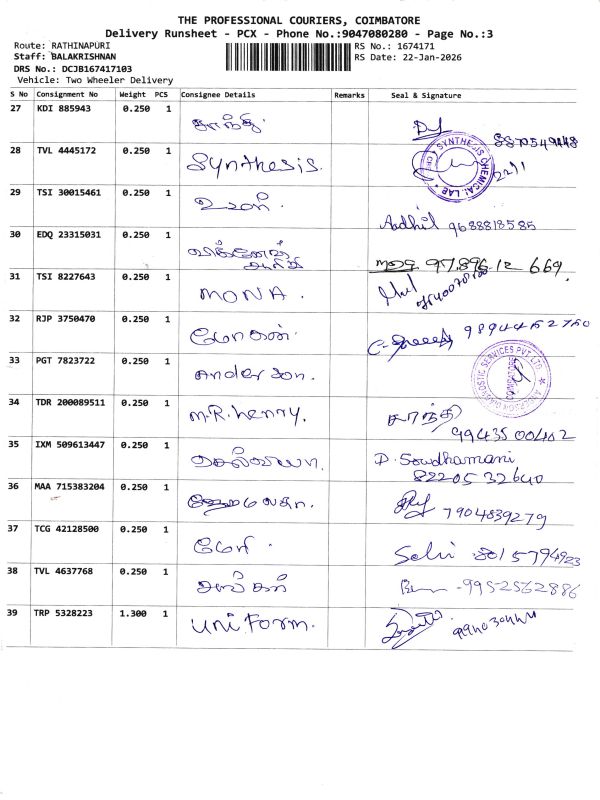 THE PROFESSIONAL COURIERS, COIMBATORE
Delivery Runsheet - PCX - Phone No.:9047080280 - Page No.:3
Route: RATHINAPURI RS No.: 1674171
Staff: BALAKRISHNAN RS Date: 22-Jan-2026
DRS No.: DCJB167417103
Vehicle: Two Wheeler Delivery
S No Consignment No Weight PCS Consignee Details Remarks Seal & Signature
27 KDI 885943 0.250 1
28 TVL 4445172 0.250 1 Synthesis. SYNTHESIS CHEMICAL LAB
29 TSI 30015461 0.250 1 Aadhil 9688818585
30 EDQ 23315031 0.250 1
31 TSI 8227643 0.250 1 MONA.
32 RJP 3750470 0.250 1 மோகன். 9894462760
33 PGT 7823722 0.250 1 Anderson. DIAGNOSTIC SERVICES PVT LTD
34 TDR 200089511 0.250 1 M.R. henry. சாந்தி
9943500402
35 IXM 509613447 0.250 1 D. Sowdhamani
8220532640
36 MAA 715383204 0.250 1 7904839279
37 TCG 42128500 0.250 1 மேரி. Selvi 8015794923
38 TVL 4637768 0.250 1 -9952562886
39 TRP 5328223 1.300 1 Uniform.